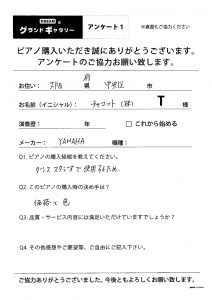 グランドギャラリー
アンケート1
※裏面もご協力ください
ピアノ購入いただき誠にありがとうございます。
アンケートのご協力お願い致します。
お住い: 大阪 府 中央区 市
お名前(イニシャル): チャコット(株) T 様
演奏歴: 年 □これから始める
メーカー: YAMAHA 機種:
Q1. ピアノの購入経緯を教えてください。
ダンススタジオで使用するため
Q2. このピアノの購入時の決め手は?
価格と色
Q3. 品質・サービス内容には満足いただけていますでしょうか?
Q4. その他感想やご要望等、ご自由にご記入下さい。
ご協力ありがとうございました。今後ともよろしくお願い致します。